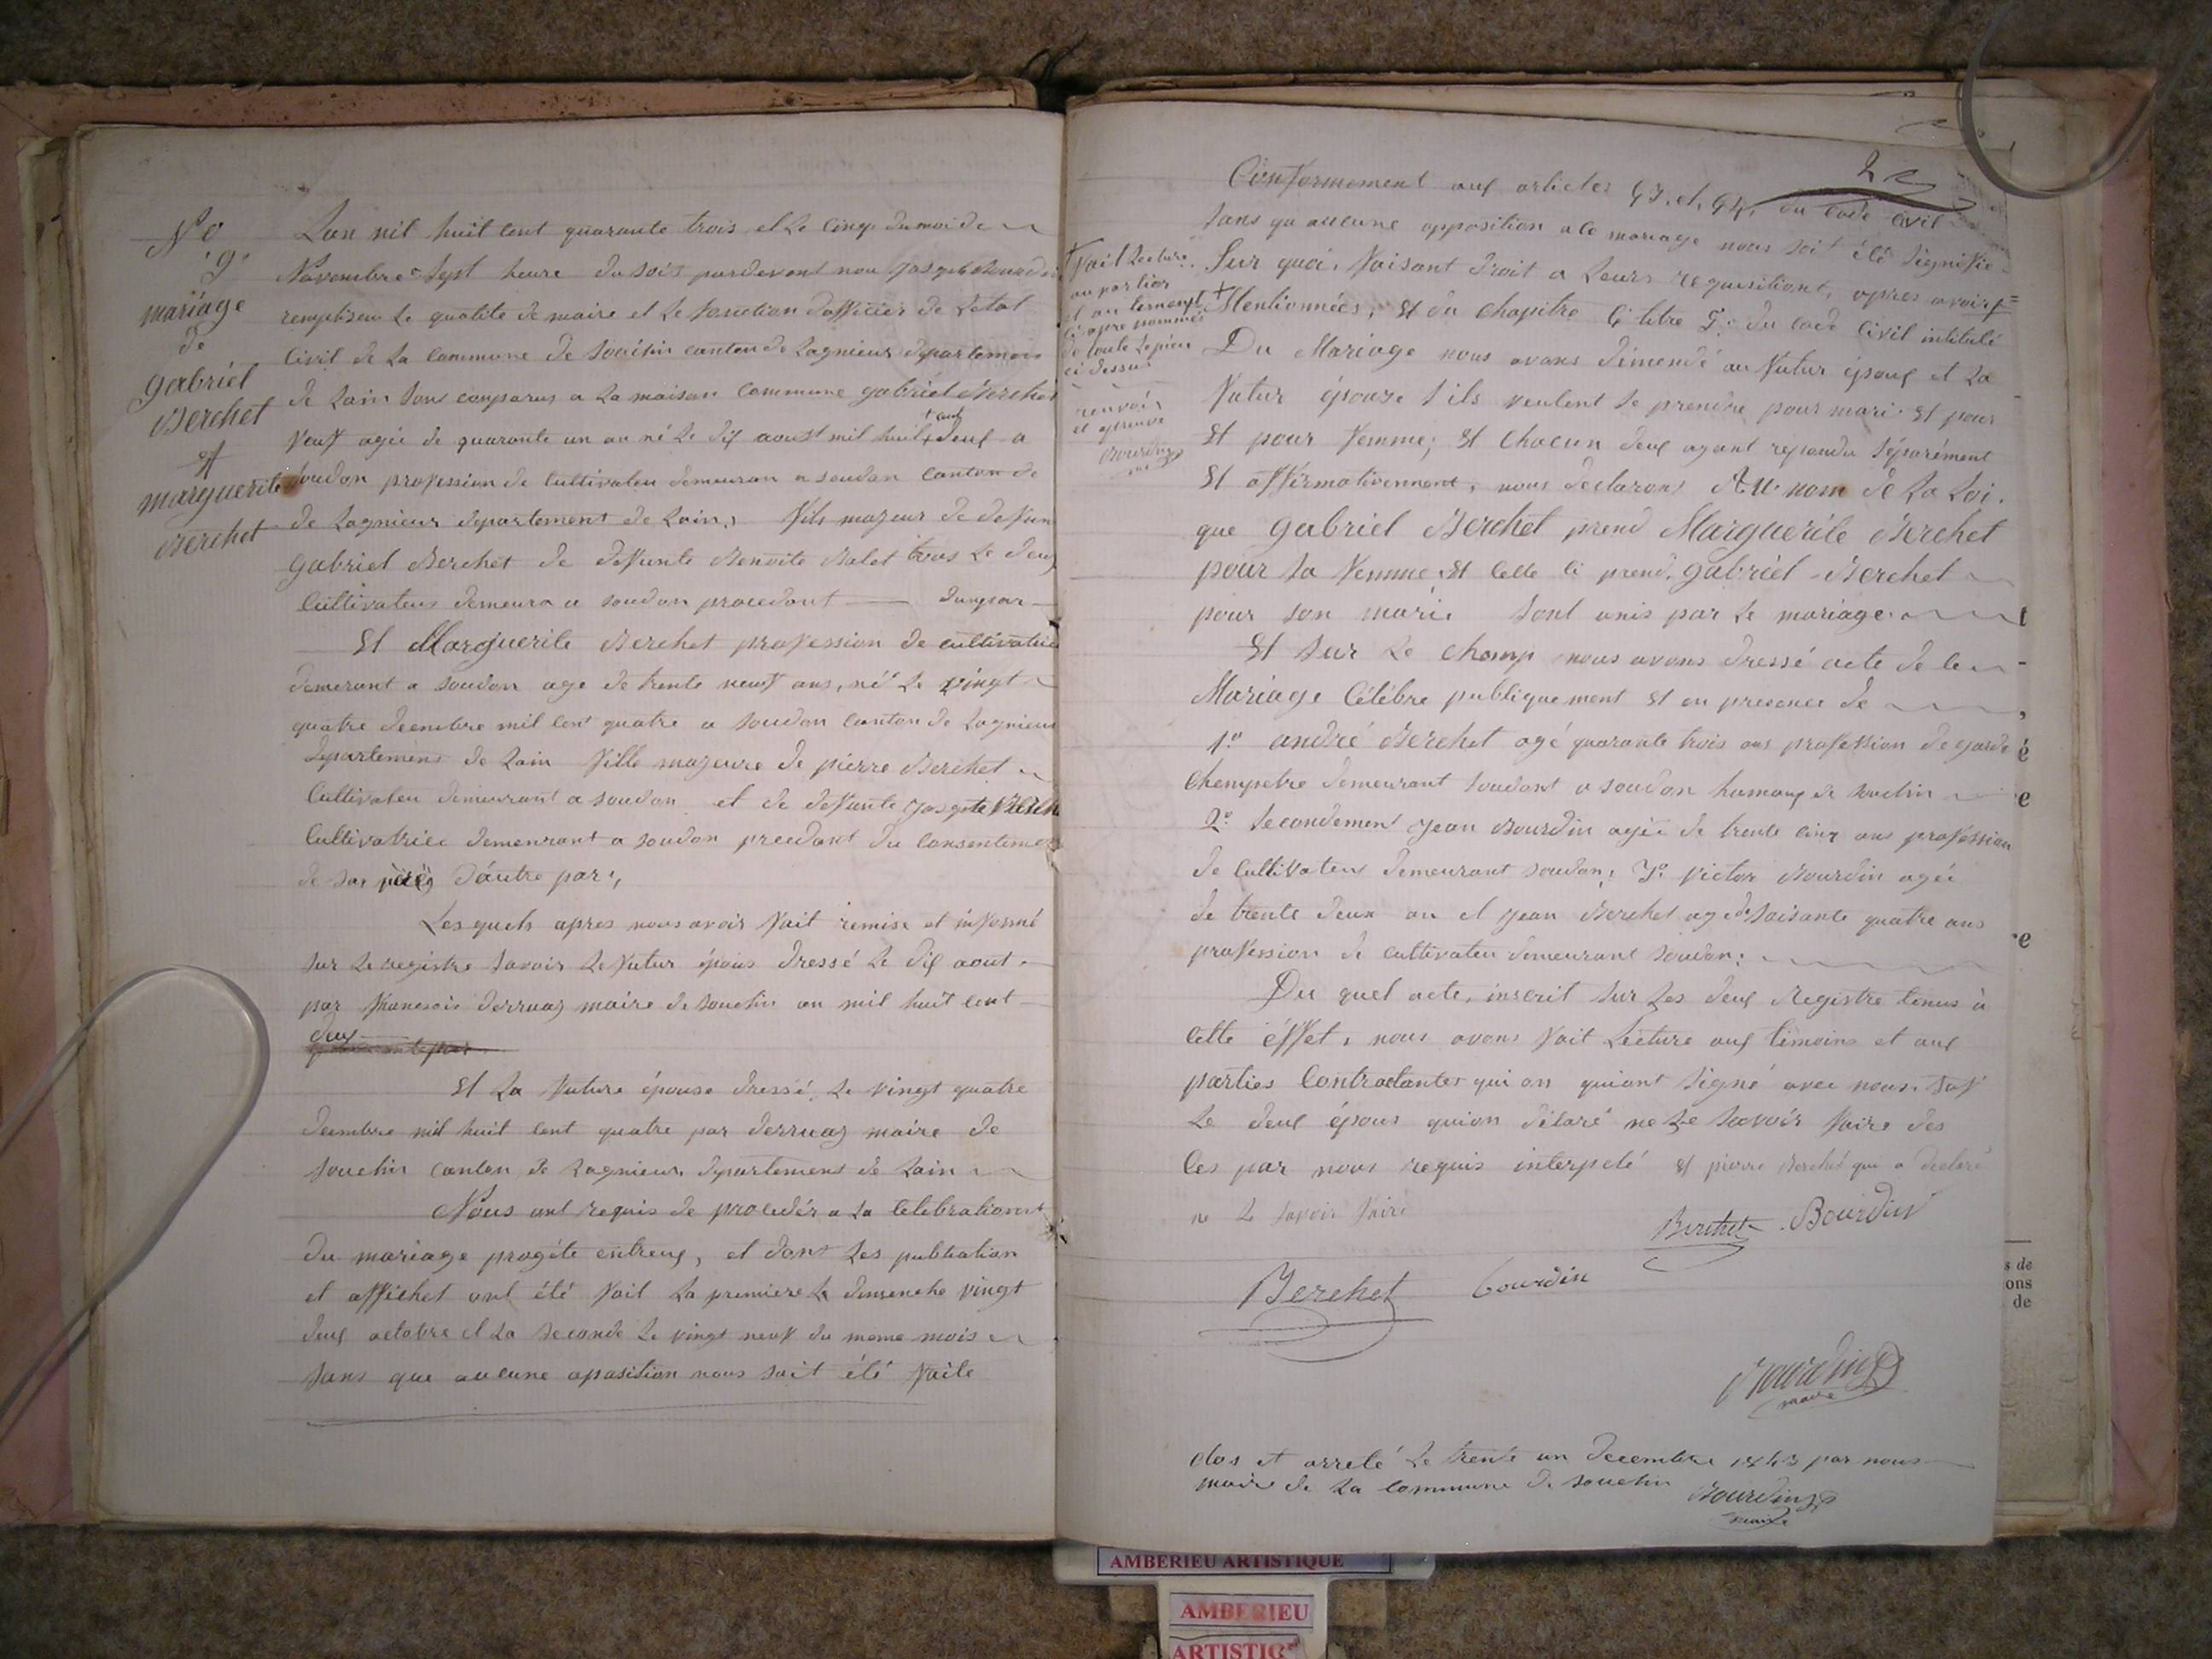 No
9
mariage
de
gabriel
Berchet
et
marguerite
Berchet
Lan mil huit cent quarante trois et le cinq du moi de
Novembre a sept heure du soir pardevant nou
rempliseu le qualite de maire et le fonction dofficier de Letat
Civil de la Commune de Souclin canton de Lagnieux departemen
de Lain Son comparus a la maison Commune gabriel Berchet
Veuf agée de quarante un an né le dix aoust mil huit + deux a
+ cent
soudon profession de Cultivateu demeuran a soudon Canton de
de Lagnieux departement de Lain, fils majeur de defun
gabriel Berchet de defunte Benoite Balet tous le deux
Cultivateur demeura a soudon procedant dunepar
Et Marguerite Berchet profession de cultivatrice
demerant a soudon age de trente neuf ans, né le vingt
quatre decembre mil cent quatre a soudon Canton de Lagnieux
departement de Lain fille majeure de pierre Berchet
Cultivateu demeurant a soudon et de defunte
Cultivatrice demeurant a soudon precedant du Consentemen
de son père d'autre par,
Les quels apres nous avoir fait remise et informé
sur le registre savoir le futur épous dressé le dix aout
par francois derruaz maire de Souclin an mil huit cent
deux
Et La future épouse dressé, le vingt quatre
decembre mil huit cent quatre par derruaz maire de
Souclin canton de Lagnieux departement de Lain
Nous ont requis de proceder a la Celebration
du mariage progété entreux, et dont les publication
et affichet ont été fait la premiere le dimenche vingt
deux octobre et la seconde le vingt neuf du meme mois
sans que aucune oposition nous soit été faite
Conformement aux articles 63. et. 64. du code civil
sans qu aucune opposition a ce mariage nous soit été signifie
Sur quoi, faisant droit a leurs requisitions, apres avoir +
+ fait Lecture
au partier
et au tement
ci apre nommés
de toute le piece
ci dessus
renvois
et aprouve
Bourdin
Mentionnées, Et du Chapitre 6 titre 5. du code Civil intitulé
Du Mariage nous avons démendé au futur époux et la
futur épouze s'ils veulent se prendre pour mari Et pour
Et pour femme; Et Chacun deux ayant repondu séparément
Et affirmativemment, nous declarons Au nom de la Loi.
que gabriel Berchet prend Marguerite Berchet
pour sa femme, Et Celle ci prend, gabriel Berchet
pour son mari sont unis par le mariage
Et sur le Champ nous avons dressé acte de ce
Mariage Célébre publiquement Et en presence de
1.o andré Berchet agé quarante trois ans profession de garde
Chempetre demeurant soudont a soudon hamaux de souclin
2.o secondement Jean Bourdin agée de trente cinq ans profession
de Cultivateur demeurant soudon; 3.o victor Bourdin agée
de trente deux an et Jean Berchet age de soisante quatre ans
profession de cultivateu demeurant soudon;
Du quel acte, inscrit sur les deux Registre tenus à
cette éffet, nous avons fait Lecture aux témoins et aux
parties Contractantes qui on quiont signé avec nous. sof
Le deux épous quion délaré ne le savoir faire des
les par nous requis interpelé et pierre Berchet qui a declaré
ne le savoir faire
Berchet Bourdin
Berchet bourdin
Bourdin
maire
Clos et arreté le trente un decembre 1843 par nous
maire de la Commune de souclin Bourdin
maire
é
e
e
s de
ons
de
AMBERIEU ARTISTIQUE
AMBERIEU